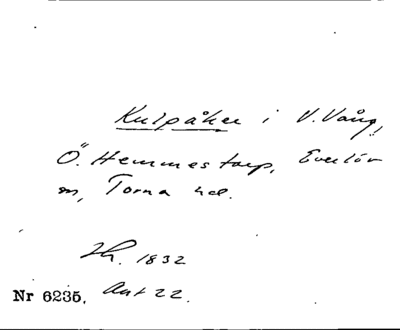 Kulpåker i V. Vång,
Ö. Hemmestorp, Everlöv
sn, Torna hd.
Lh. 1832
Nr 6235. Akt 22.